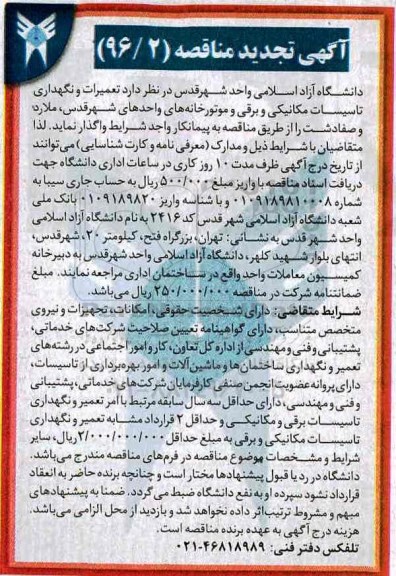 آگهی تجدید مناقصه (۹۶/۲)
دانشگاه آزاد اسلامی واحد شهرقدس در نظر دارد تعمیرات و نگهداری
تاسیسات مکانیکی و برقی و موتورخانه‌های واحدهای شهرقدس، ملارد
و صفادشت را از طریق مناقصه به پیمانکار واجد شرایط واگذار نماید. لذا
متقاضیان با شرایط ذیل و مدارک (معرفی نامه و کارت شناسایی) می‌توانند
از تاریخ درج آگهی ظرف مدت ۱۰ روز کاری در ساعات اداری دانشگاه جهت
دریافت اسناد مناقصه با واریز مبلغ ۵۰۰/۰۰۰ ریال به حساب جاری سیبا به
شماره ۰۱۰۹۱۸۹۸۱۰۰۰۸ و با شناسه واریز ۰۱۰۹۱۸۹۸۲۰ بانک ملی
شعبه دانشگاه آزاد اسلامی شهر قدس کد ۲۴۱۶ به نام دانشگاه آزاد اسلامی
واحد شهر قدس به نشانی: تهران، بزرگراه فتح، کیلومتر ۲۰، شهرقدس،
انتهای بلوار شهید کلهر، دانشگاه آزاد اسلامی واحد شهرقدس به دبیرخانه
کمیسیون معاملات واحد واقع در ساختمان اداری مراجعه نمایند. مبلغ
ضمانتنامه شرکت در مناقصه ۲۵۰/۰۰۰/۰۰۰ ریال می‌باشد.
شرایط متقاضی: دارای شخصیت حقوقی، امکانات، تجهیزات و نیروی
متخصص متناسب، دارای گواهینامه تعیین صلاحیت شرکت‌های خدماتی،
پشتیبانی و فنی و مهندسی از اداره کل تعاون، کار و امور اجتماعی در رشته‌های
تعمیر و نگهداری ساختمان ها و ماشین آلات و امور بهره‌برداری از تاسیسات،
دارای پروانه عضویت انجمن صنفی کارفرمایان شرکت‌های خدماتی، پشتیبانی
و فنی و مهندسی، دارای حداقل سه سال سابقه مرتبط با امر تعمیر و نگهداری
تاسیسات برقی و مکانیکی و حداقل ۲ قرارداد مشابه تعمیر و نگهداری
تاسیسات مکانیکی و برقی به مبلغ حداقل ۲/۰۰۰/۰۰۰/۰۰۰ ریال، سایر
شرایط و مشخصات موضوع مناقصه در فرم‌های مناقصه مندرج می‌باشد.
دانشگاه در رد یا قبول پیشنهادها مختار است و چنانچه برنده حاضر به انعقاد
قرارداد نشود سپرده او به نفع دانشگاه ضبط می گردد. ضمنا به پیشنهادهای
مبهم و مشروط ترتیب اثر داده نخواهد شد و بازدید از محل الزامی می‌باشد.
هزینه درج آگهی به عهده برنده مناقصه است.
تلفکس دفتر فنی: ۴۶۸۱۸۹۸۹-۰۲۱